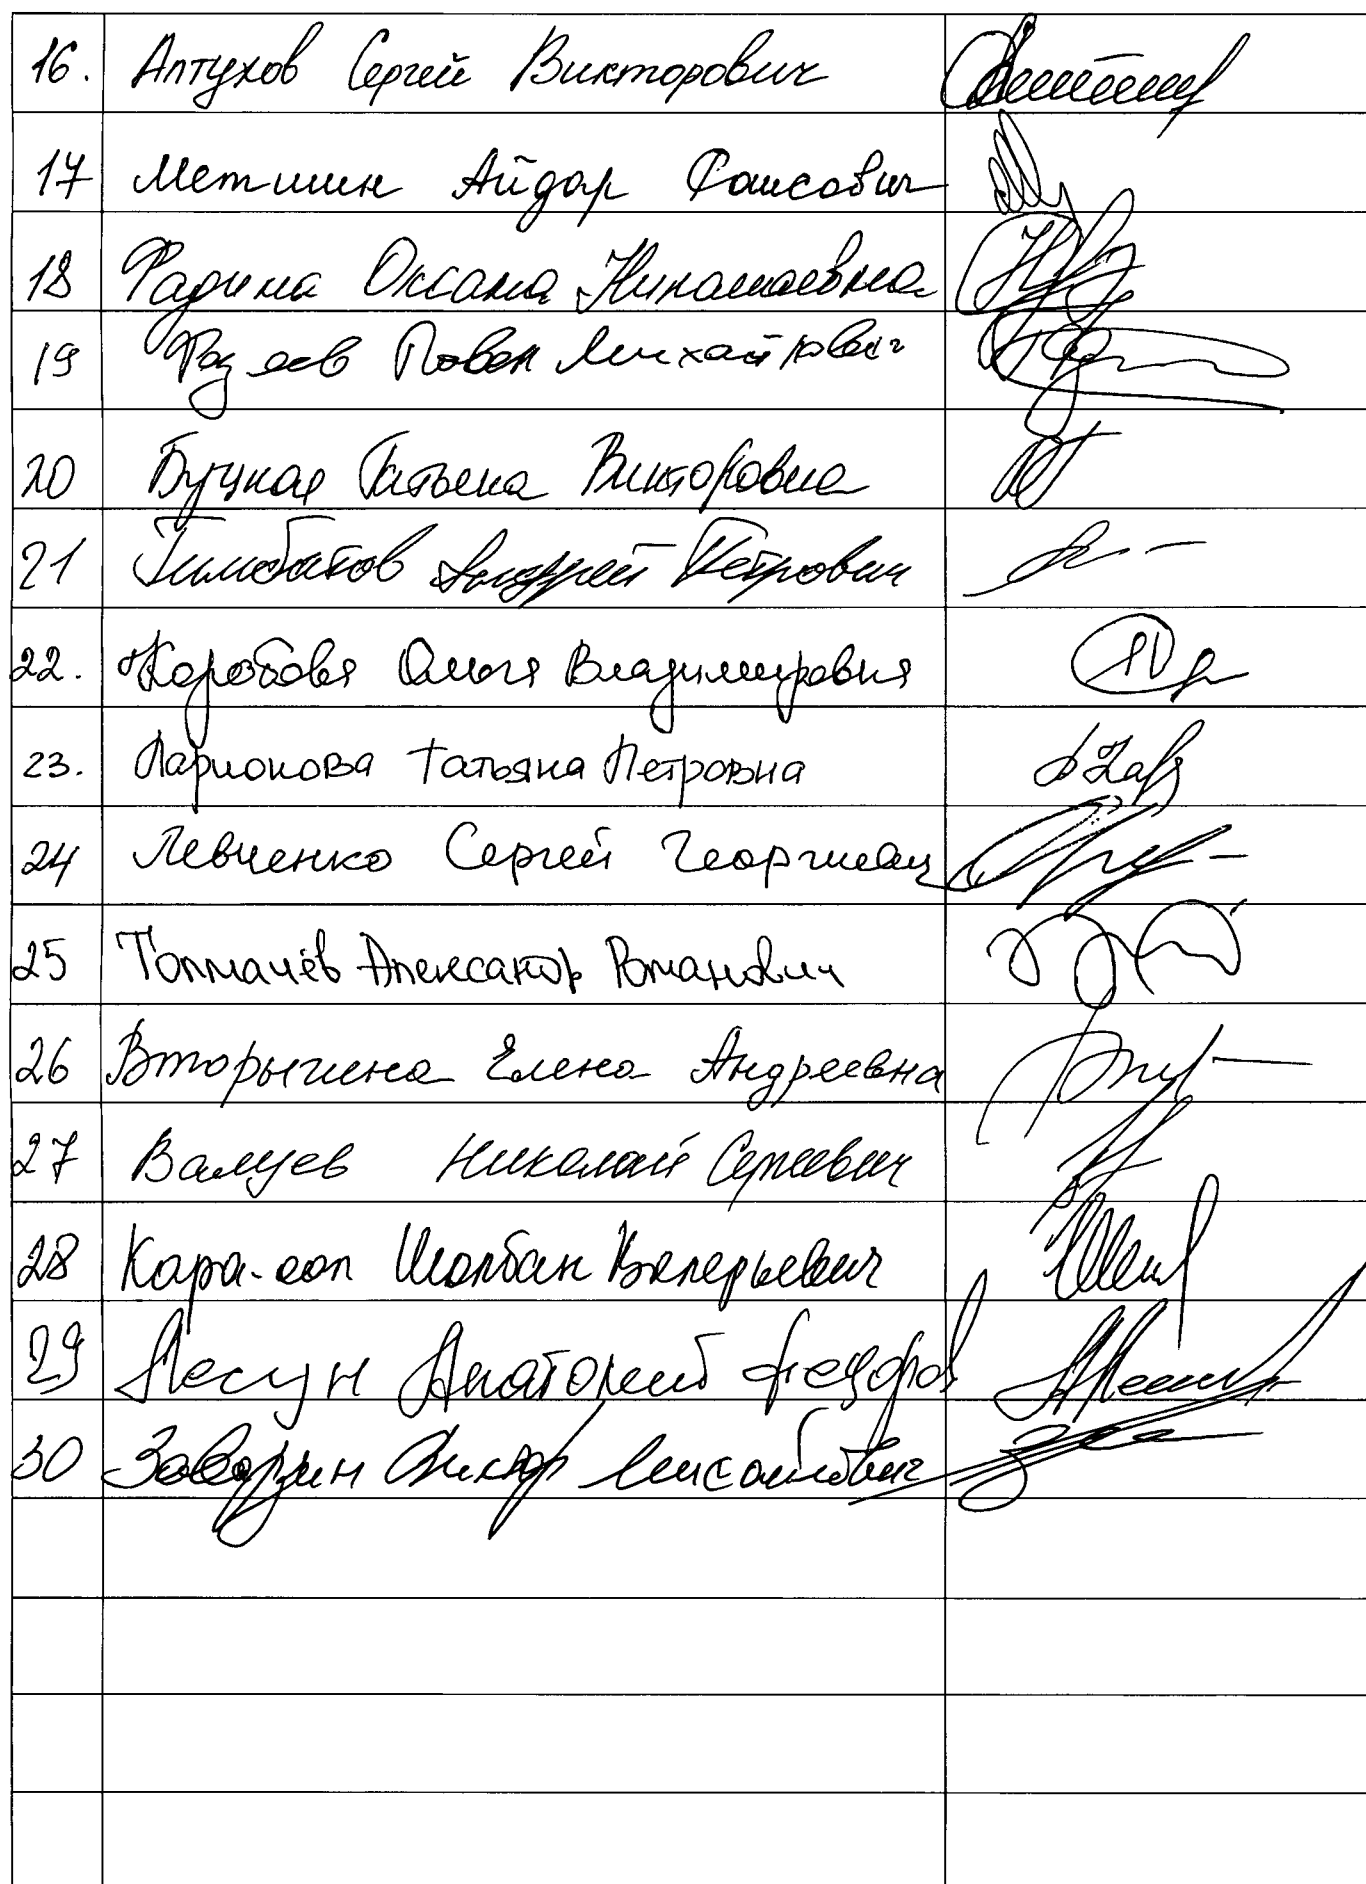 16. Алтухов Сергей Викторович
17 Метшин Айдар Раисович
18 Фадина Оксана Николаевна
19 Федяев Павел Михайлович
20 Буцкая Татьяна Викторовна
21 Гимбатов Андрей Петрович
22. Коробова Ольга Владимировна
23. Ларионова Татьяна Петровна
24 Левченко Сергей Георгиевич
25 Толмачёв Александр Романович
26 Вторыгина Елена Андреевна
27 Валуев Николай Сергеевич
28 Кара-оол Шолбан Валерьевич
29 Лесун Анатолий Федоров
30 Заварзин Виктор